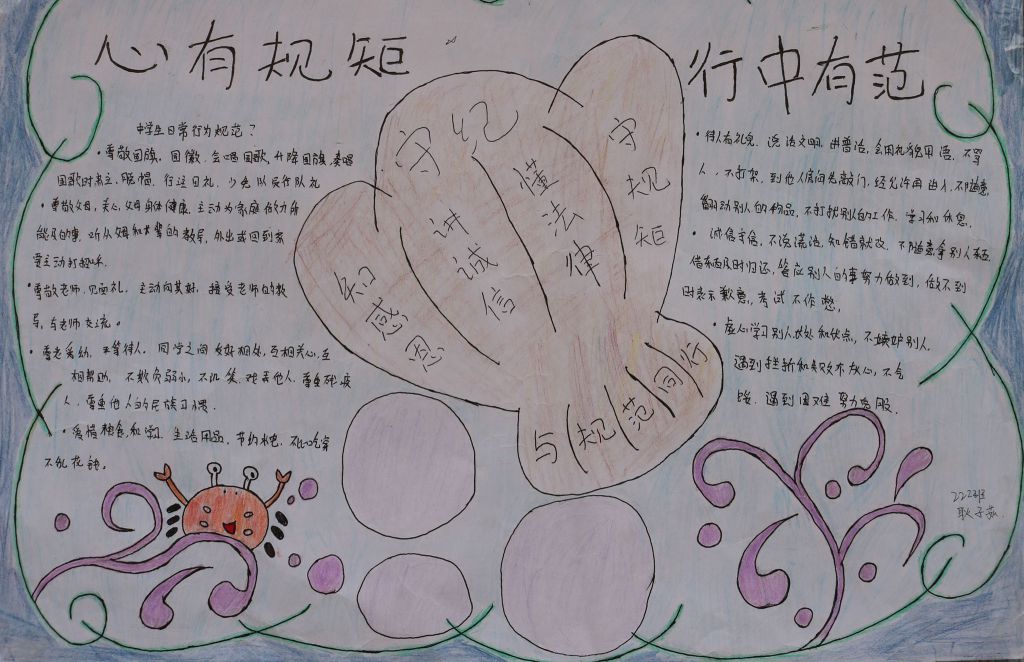 心有规矩
行中有范
中学生日常行为规范？
·尊敬国旗、国徽，会唱国歌，升降国旗、奏唱
国歌时肃立、脱帽、行注目礼，少先队员行队礼
·尊敬父母，关心父母身体健康，主动为家庭做力所
能及的事，听从父母和长辈的教导，外出或回到家
要主动打招呼.
·尊敬老师，见面礼，主动向其好，接受老师的教
导，与老师交流。
·尊老爱幼，平等待人，同学之间友好相处，互相关心，互
相帮助，不欺负弱小，不讥笑、戏弄他人，尊重残疾
人，尊重他人的民族习惯.
·爱惜粮食和学习、生活用品，节约水电，不比吃穿
不乱花钱。
知感恩
守纪
讲诚信
懂法律
守规矩
与规范同行
·待人有礼貌，说话文明，讲普话，会用礼貌用语，不骂
人，不打架，到他人房间先敲门，经允许再进入，不随意
翻动别人的物品，不打扰别人的工作、学习和休息.
·诚信守信，不说谎话，知错就改，不随意拿别人东西，
借东西及时归还，答应别人的事努力做到，做不到
时表示歉意，考试不作弊.
·虚心学习别人长处和优点，不嫉妒别人.
遇到挫折和失败不灰心，不气
馁，遇到困难努力克服.
222班
耿子茹.